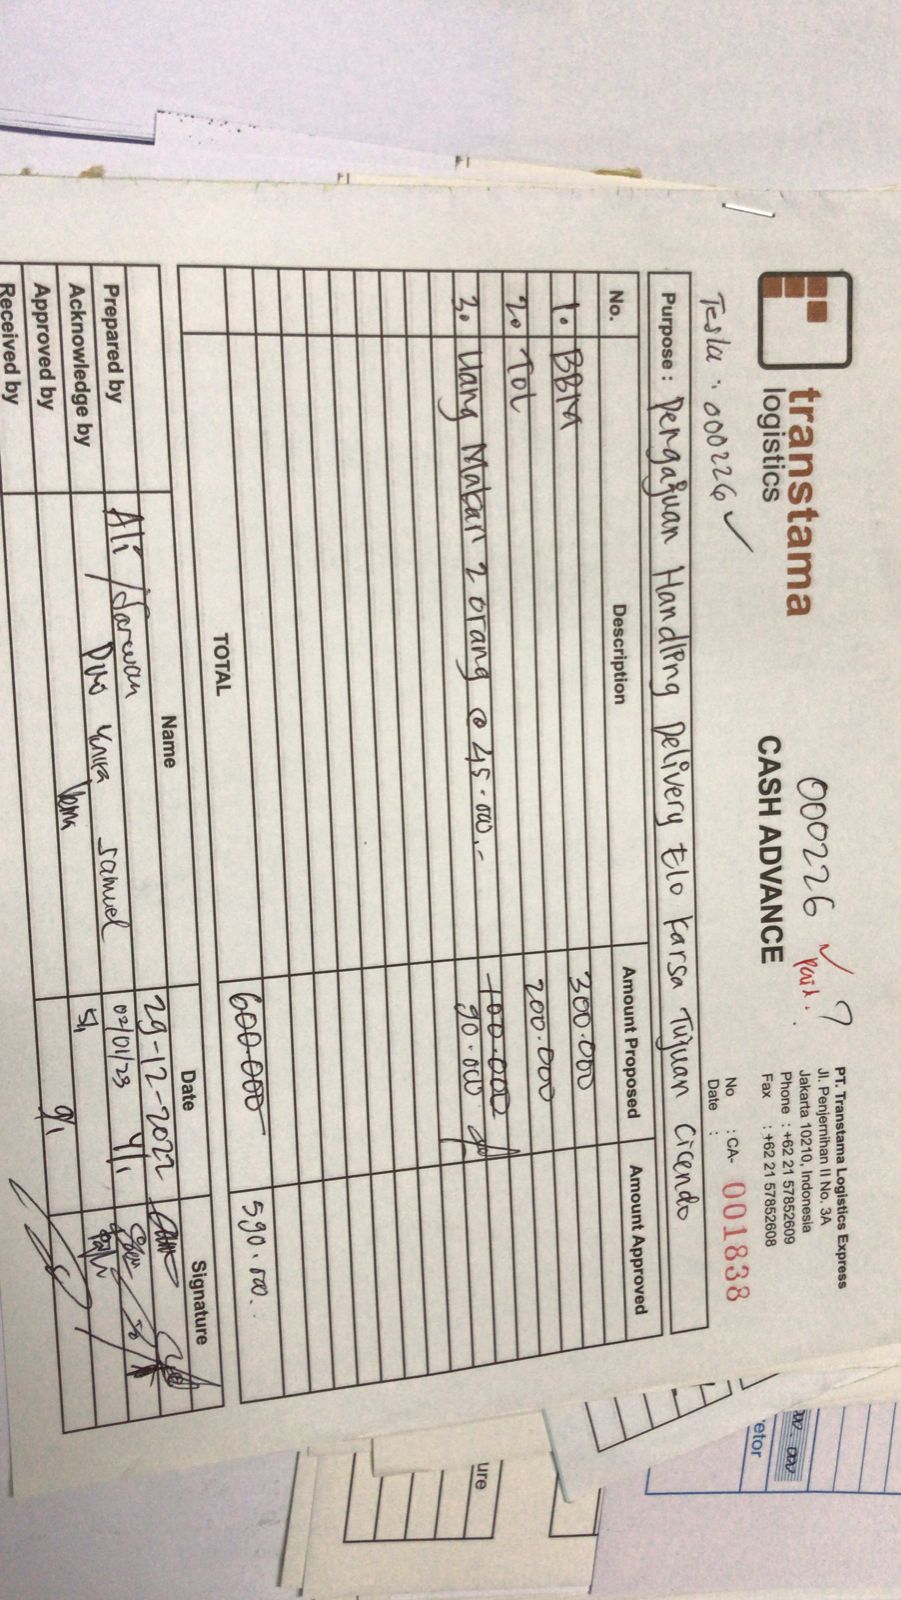 transtama
logistics
000226 ✓ ?
paid.
CASH ADVANCE
PT. Transtama Logistics Express
Jl. Penjernihan II No. 3A
Jakarta 10210, Indonesia
Phone : +62 21 57852609
Fax : +62 21 57852608
Tesla : 000226 ✓
No : CA- 001838
Date :
Purpose : Pengajuan Handling Delivery Elo Karsa Tujuan Cicendo
No. Description Amount Proposed Amount Approved
1. BBM 300.000
2. Tol 200.000
3. Uang Makan 2 orang @ 45.000.- 100.000
90.000
TOTAL 600.000 590.000.
Name Date Signature
Prepared by Ali / Sarwan 29-12-2022
Acknowledge by samuel 02/01/23 4/1
Approved by 5/1
Received by 9/1
000.000
retor
ure